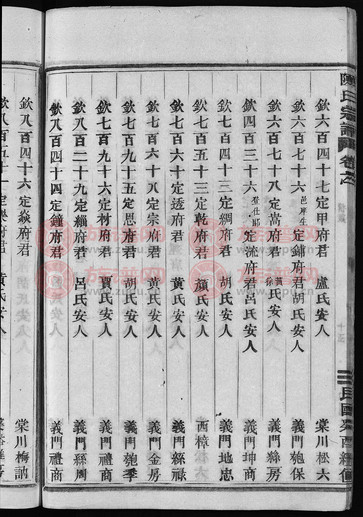 陳氏宗譜
欽六百四十七定甲府君 盧氏安人 棠川松六
欽六百七十六 邑庠生 定鏽府君胡氏安人 義門匏保
欽六百七十八定嵩府君 黃徐氏安人 義門絲房
欽四百三十六 登仕郎 定流府君呂氏安人 義門坤商
欽七百四十四定綢府君 胡氏安人 義門地忠
欽七百五十三定乾府君 顏氏安人 西樟
欽七百六十定透府君 黃氏安人 義門絲祿
欽七百六十八定宗府君 黃氏安人 義門金房
欽七百九十五定恩府君 胡氏安人 義門匏季
欽七百九十六定材府君 賈氏安人 義門禮商
欽八百二十九定緗府君 呂氏安人 義門絲周
欽八百四十四定鐘府君 黃氏安人 義門禮商
欽八百四十六定焱府君 胡氏安人 棠川梅訥
黃氏安人